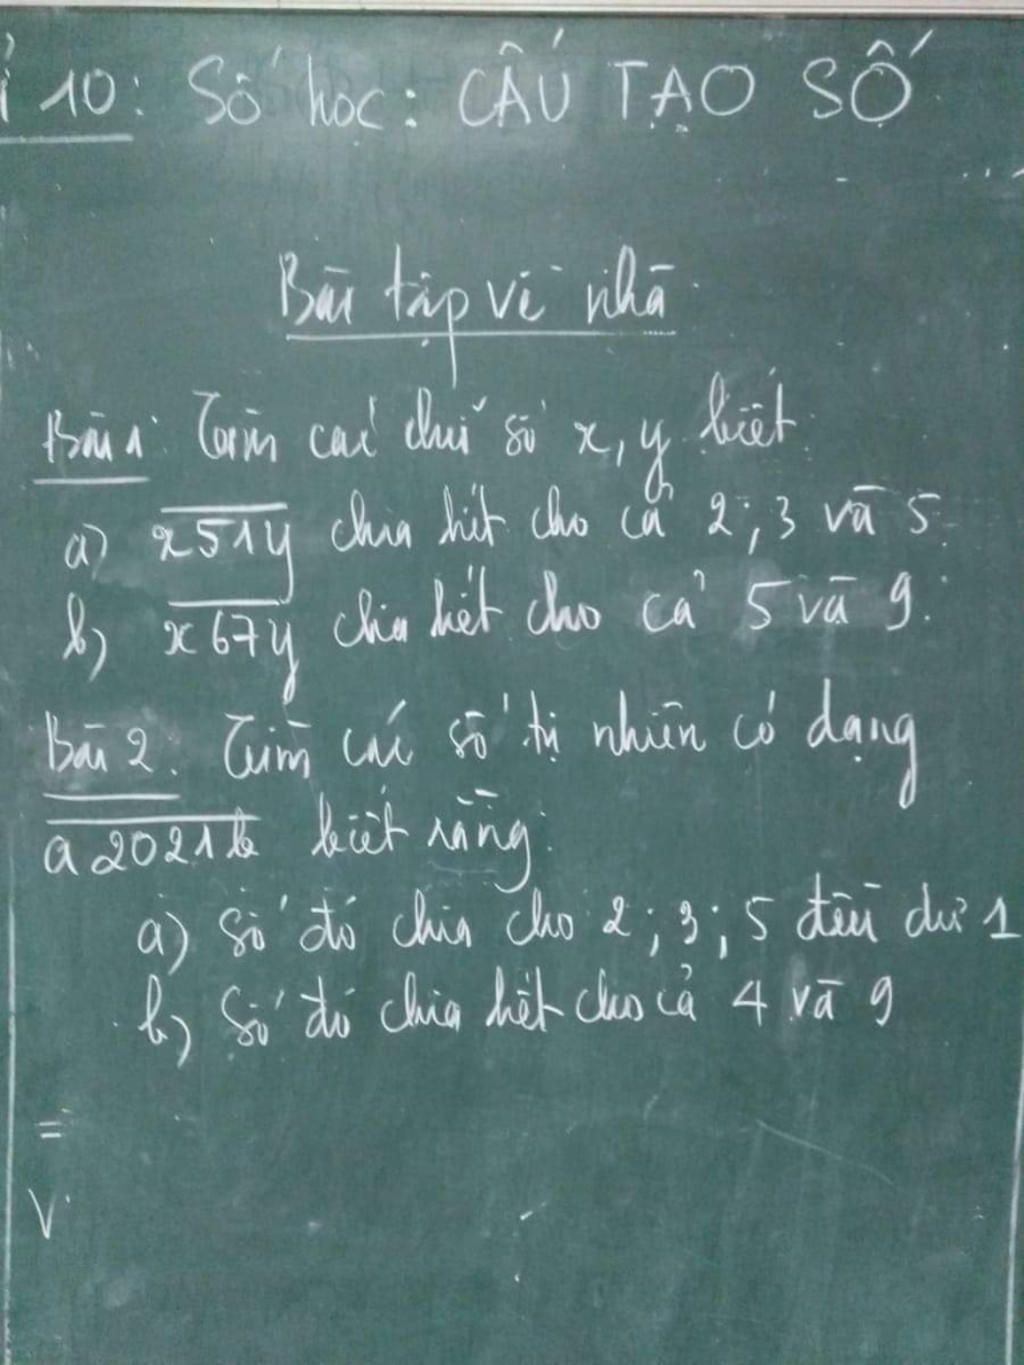 10: Số học: CẤU TẠO SỐ
Bài tập về nhà
Bài 1: Tìm các chữ số x, y biết:
a) x511y chia hết cho cả 2; 3 và 5.
b) x67y chia hết cho cả 5 và 9.
Bài 2. Tìm các số tự nhiên có dạng
a2021b biết rằng:
a) Số đó chia cho 2; 3; 5 đều dư 1
b) Số đó chia hết cho cả 4 và 9
=
V